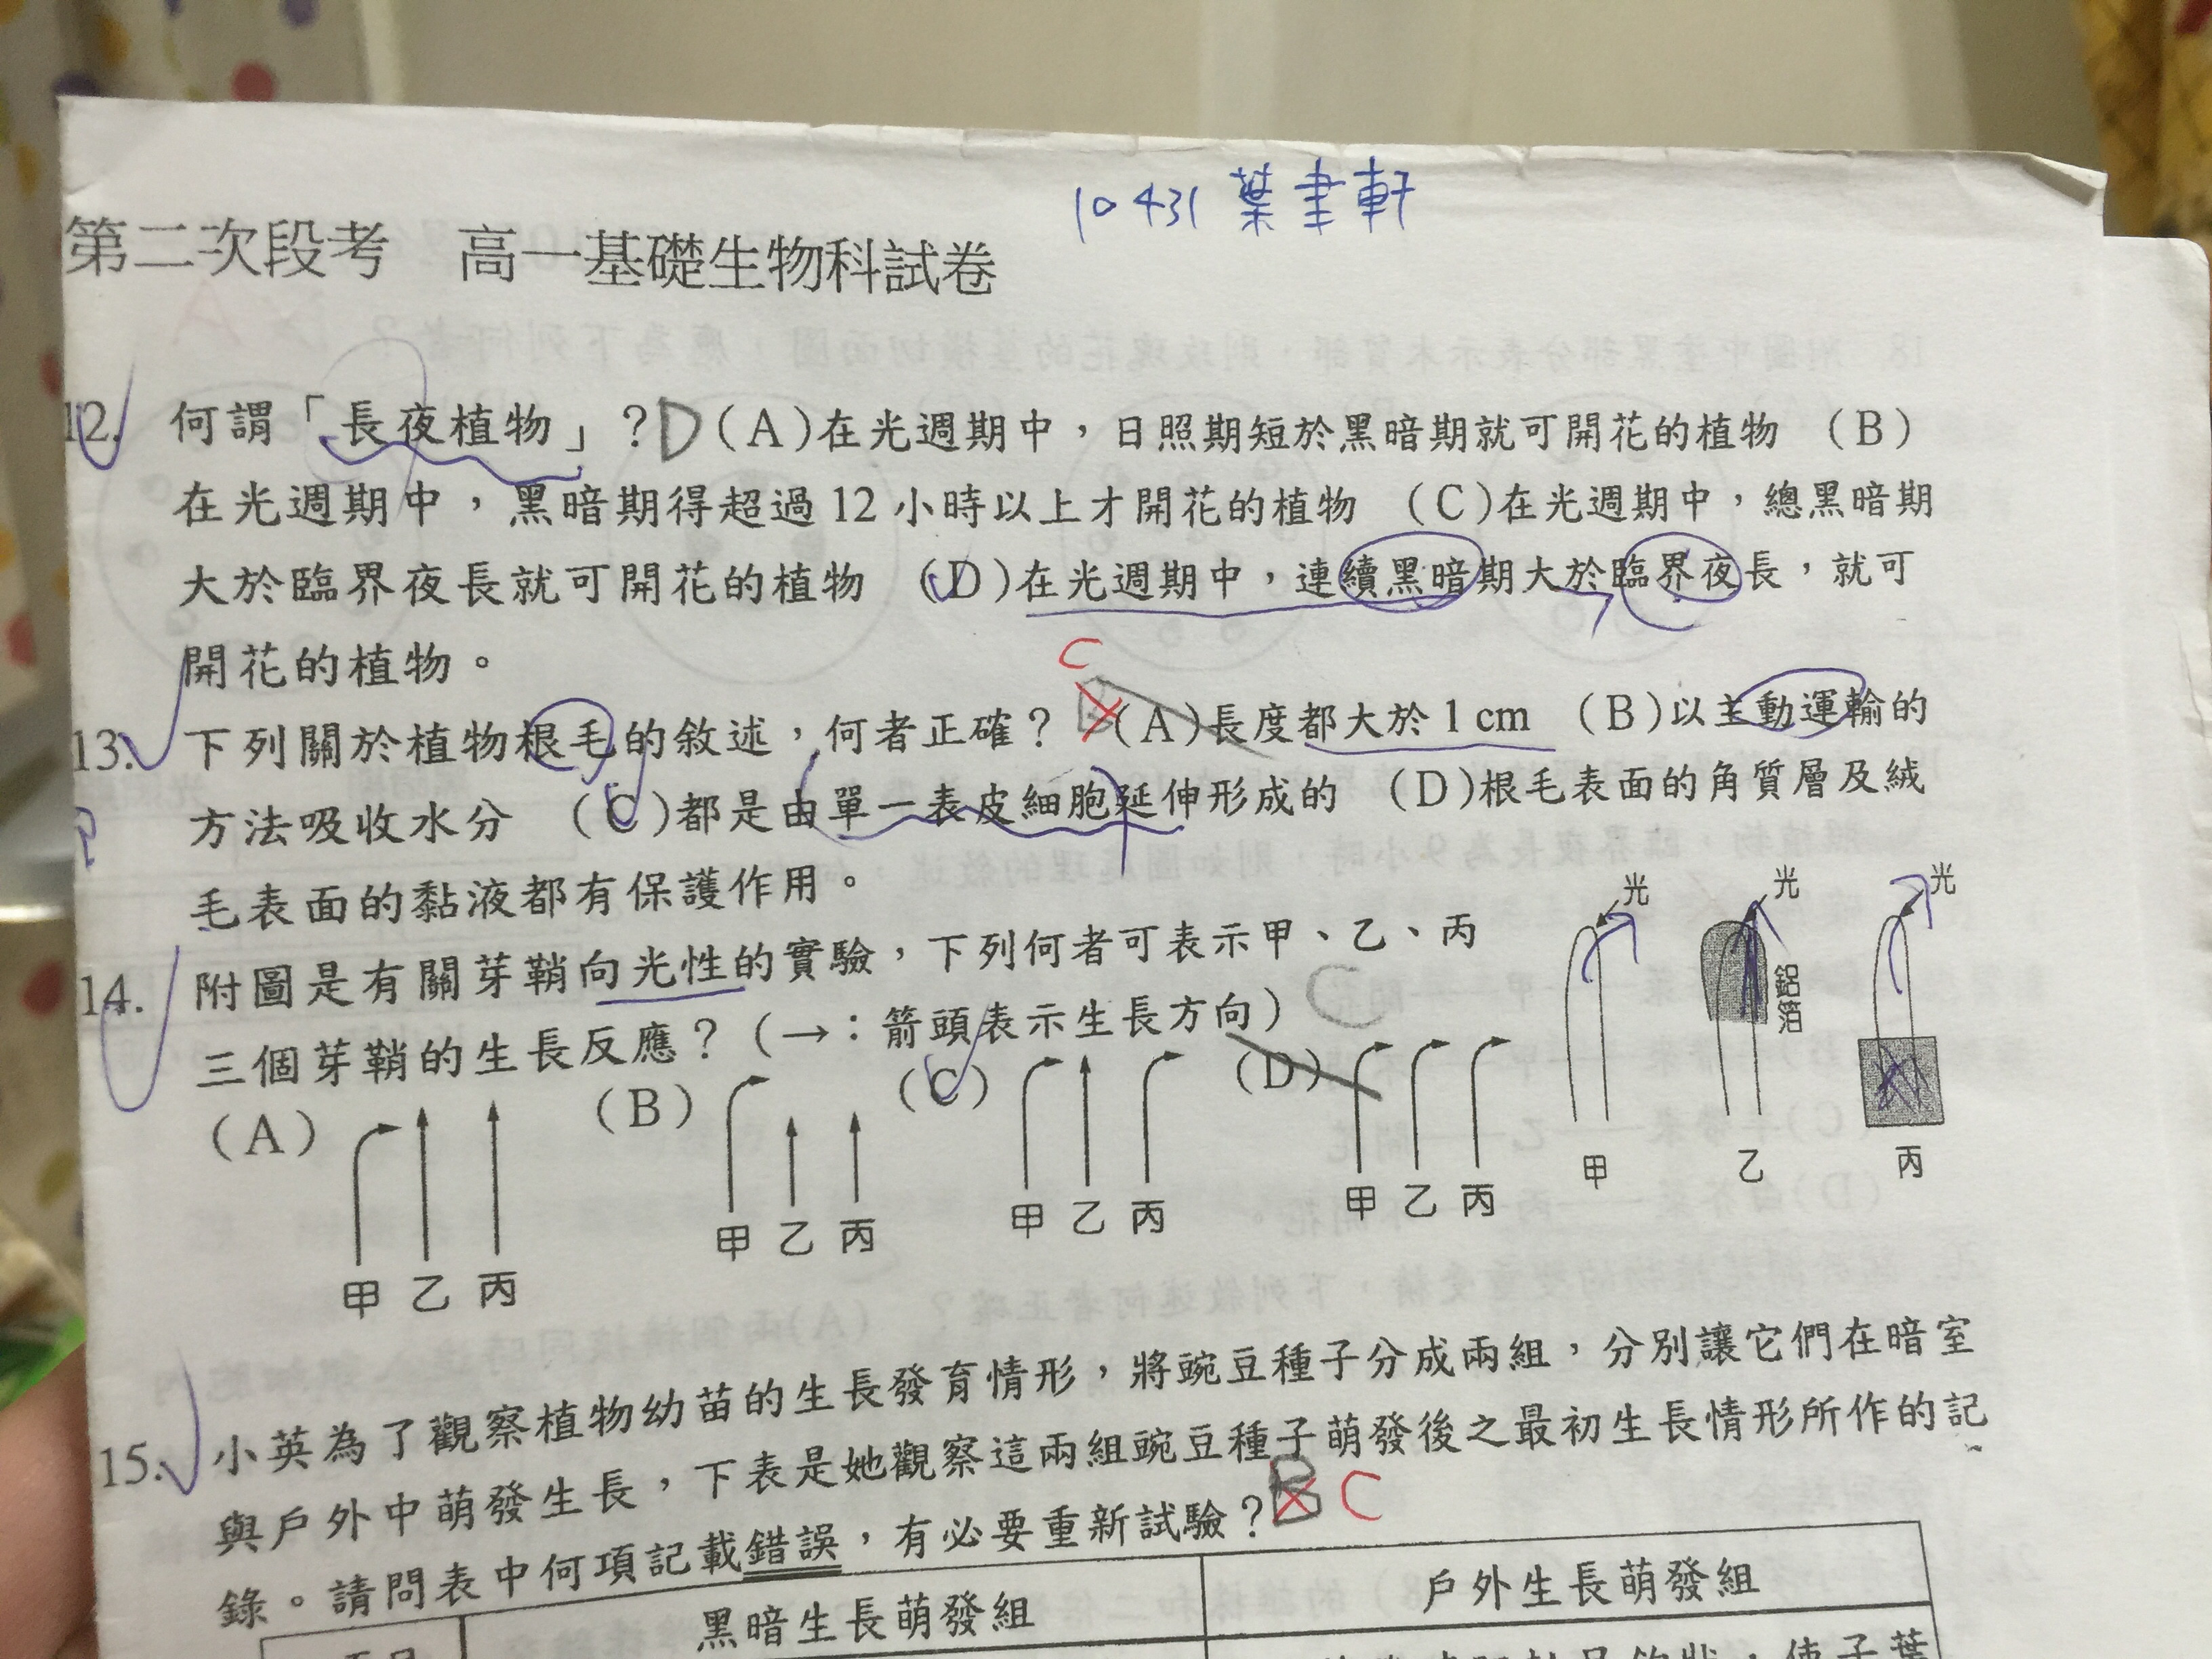 10431 葉書軒
第二次段考 高一基礎生物科試卷
12. 何謂「長夜植物」?D (A)在光週期中，日照期短於黑暗期就可開花的植物 (B)
在光週期中，黑暗期得超過12小時以上才開花的植物 (C)在光週期中，總黑暗期
大於臨界夜長就可開花的植物 (D)在光週期中，連續黑暗期大於臨界夜長，就可
開花的植物。
C
13. 下列關於植物根毛的敘述，何者正確? (A)長度都大於1cm (B)以主動運輸的
方法吸收水分 (C)都是由單一表皮細胞延伸形成的 (D)根毛表面的角質層及絨
毛表面的黏液都有保護作用。
14. 附圖是有關芽鞘向光性的實驗，下列何者可表示甲、乙、丙
三個芽鞘的生長反應?(→：箭頭表示生長方向) C
(A) (B) (C) (D)
甲 乙 丙
甲 乙 丙
甲 乙 丙
甲 乙 丙
光 光 光
鋁箔
甲 乙 丙
15. 小英為了觀察植物幼苗的生長發育情形，將豌豆種子分成兩組，分別讓它們在暗室
與戶外中萌發生長，下表是她觀察這兩組豌豆種子萌發後之最初生長情形所作的記
錄。請問表中何項記載錯誤，有必要重新試驗?B C
黑暗生長萌發組 戶外生長萌發組